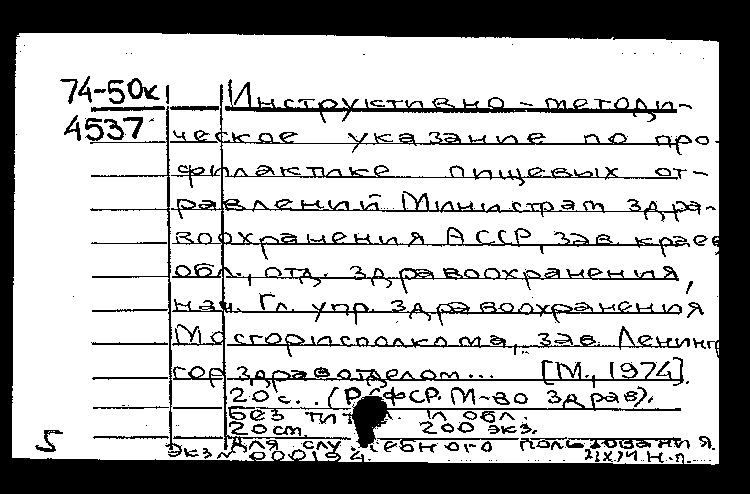 74-50к Инструктивно-методи-
4537 ческое указание по про-
филактике пищевых от-
равлений Министрам здра-
воохранения АССР, зав. краев
обл., отд. здравоохранения,
нач. Гл. упр. здравоохранения
Мосгорисполкома, зав. Ленингр
горздравотделом... [М., 1974].
20 с. (РСФСР. М-во здрав).
Без тит. л. и обл.
20 см. 200 экз.
5 Для служебного пользования.
Экз. № 000194.